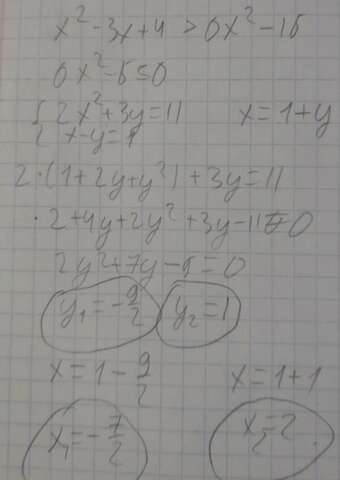 x²-3x+4 > 0x²-16
0x²-6≤0
{ 2x²+3y=11 x=1+y
x-y=1
2·(1+2y+y²)+3y=11
2+4y+2y²+3y-11=0
2y²+7y-9=0
y₁=-9/2 y₂=1
x=1-9/2 x=1+1
x₁=-7/2 x₂=2